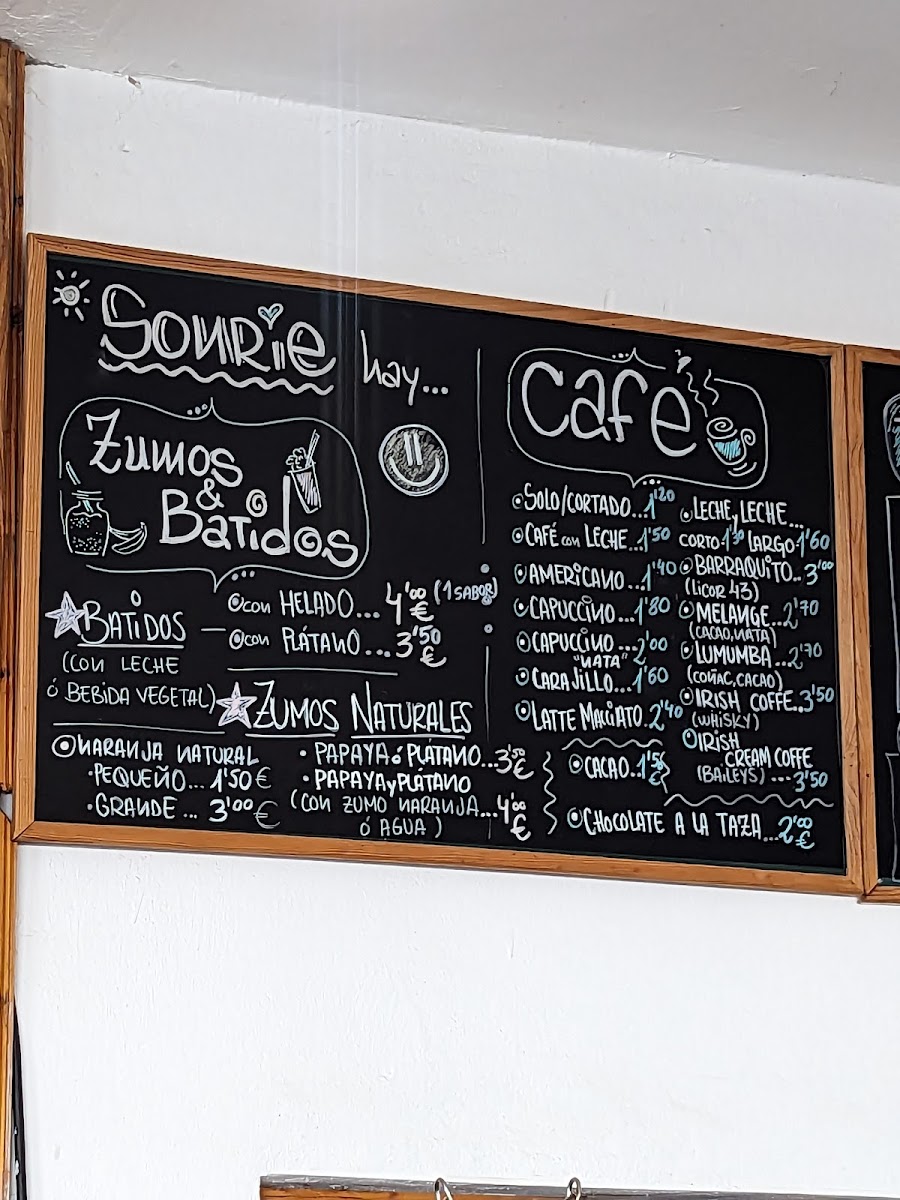 Sonrie hay...
Zumos
&
Batidos
BATIDOS
(CON LECHE
ó BEBIDA VEGETAL)
CON HELADO... 4'00 € (1 SABOR)
CON PLÁTANO... 3'50 €
ZUMOS NATURALES
NARANJA NATURAL
·PEQUEÑO... 1'50 €
·GRANDE ... 3'00 €
·PAPAYA ó PLÁTANO... 3'50 €
·PAPAYA y PLÁTANO
(CON ZUMO NARANJA... 4'00 €
ó AGUA)
Café
SOLO/CORTADO... 1'20
CAFÉ CON LECHE... 1'50
AMERICANO... 1'40
CAPUCCINO... 1'80
CAPUCCINO... 2'00
"NATA"
CARAJILLO... 1'60
LATTE MACCIATO. 2'40
LECHE, LECHE...
CORTO·1'30 LARGO·1'60
BARRAQUITO.. 3'00
(LICOR 43)
MELANGE... 2'70
(CACAO, NATA)
LUMUMBA... 2'70
(COÑAC, CACAO)
IRISH COFFE.. 3'50
(WHISKY)
IRISH
CREAM COFFE
(BAILEYS) ---- 3'50
CACAO.. 1'50 €
CHOCOLATE A LA TAZA... 2'00 €